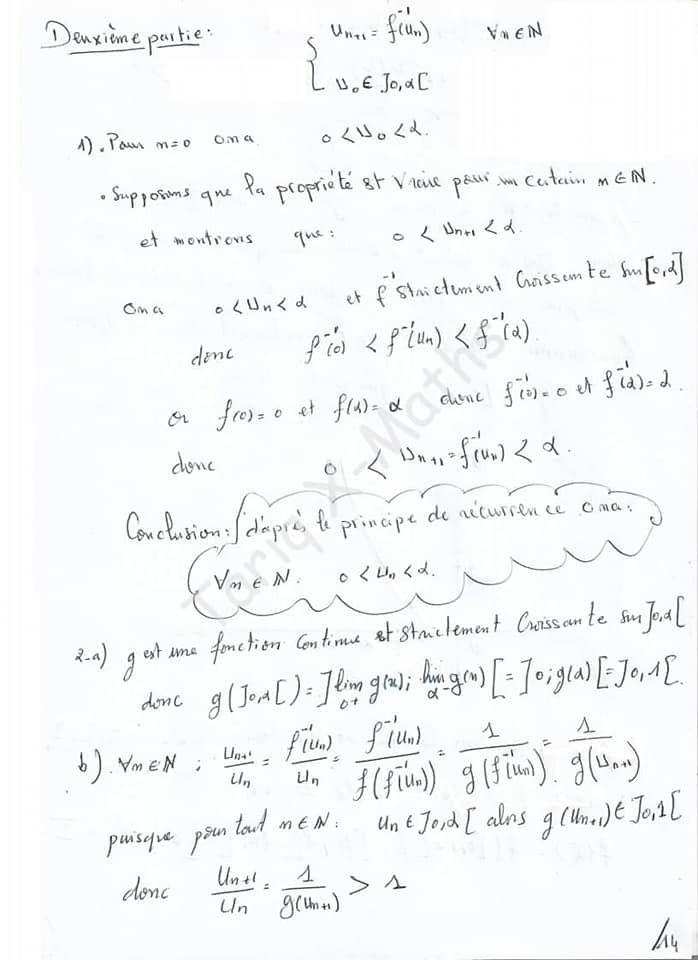 Deuxième partie: { Uₙ₊₁ = f⁻¹(Uₙ) ∀n∈ℕ
U₀ ∈ ]0,α[
1). Pour n=0 ona 0 < U₀ < α.
• Supposons que la propriété est vraie pour un certain n∈ℕ.
et montrons que: 0 < Uₙ₊₁ < α.
ona 0 < Uₙ < α et f⁻¹ strictement Croissante sur [0,α]
donc f⁻¹(0) < f⁻¹(Uₙ) < f⁻¹(α).
or f(0) = 0 et f(α) = α donc f⁻¹(0) = 0 et f⁻¹(α) = α.
donc 0 < Uₙ₊₁ = f⁻¹(Uₙ) < α.
Conclusion: d'après le principe de récurrence ona:
∀n∈ℕ. 0 < Uₙ < α.
2-a) g est une fonction Continue et strictement Croissante sur ]0,α[
donc g(]0,α[) = ]lim g(x); lim g(x)[ = ]0; g(α)[ = ]0,1[.
0⁺ α⁻
b). ∀n∈ℕ ; Uₙ₊₁/Uₙ = f⁻¹(Uₙ)/Uₙ = f⁻¹(Uₙ)/f(f⁻¹(Uₙ)) = 1/g(f⁻¹(Uₙ)) = 1/g(Uₙ₊₁)
puisque pour tout n∈ℕ: Uₙ ∈ ]0,α[ alors g(Uₙ₊₁) ∈ ]0,1[
donc Uₙ₊₁/Uₙ = 1/g(Uₙ₊₁) > 1
/14
Tariq X-Maths